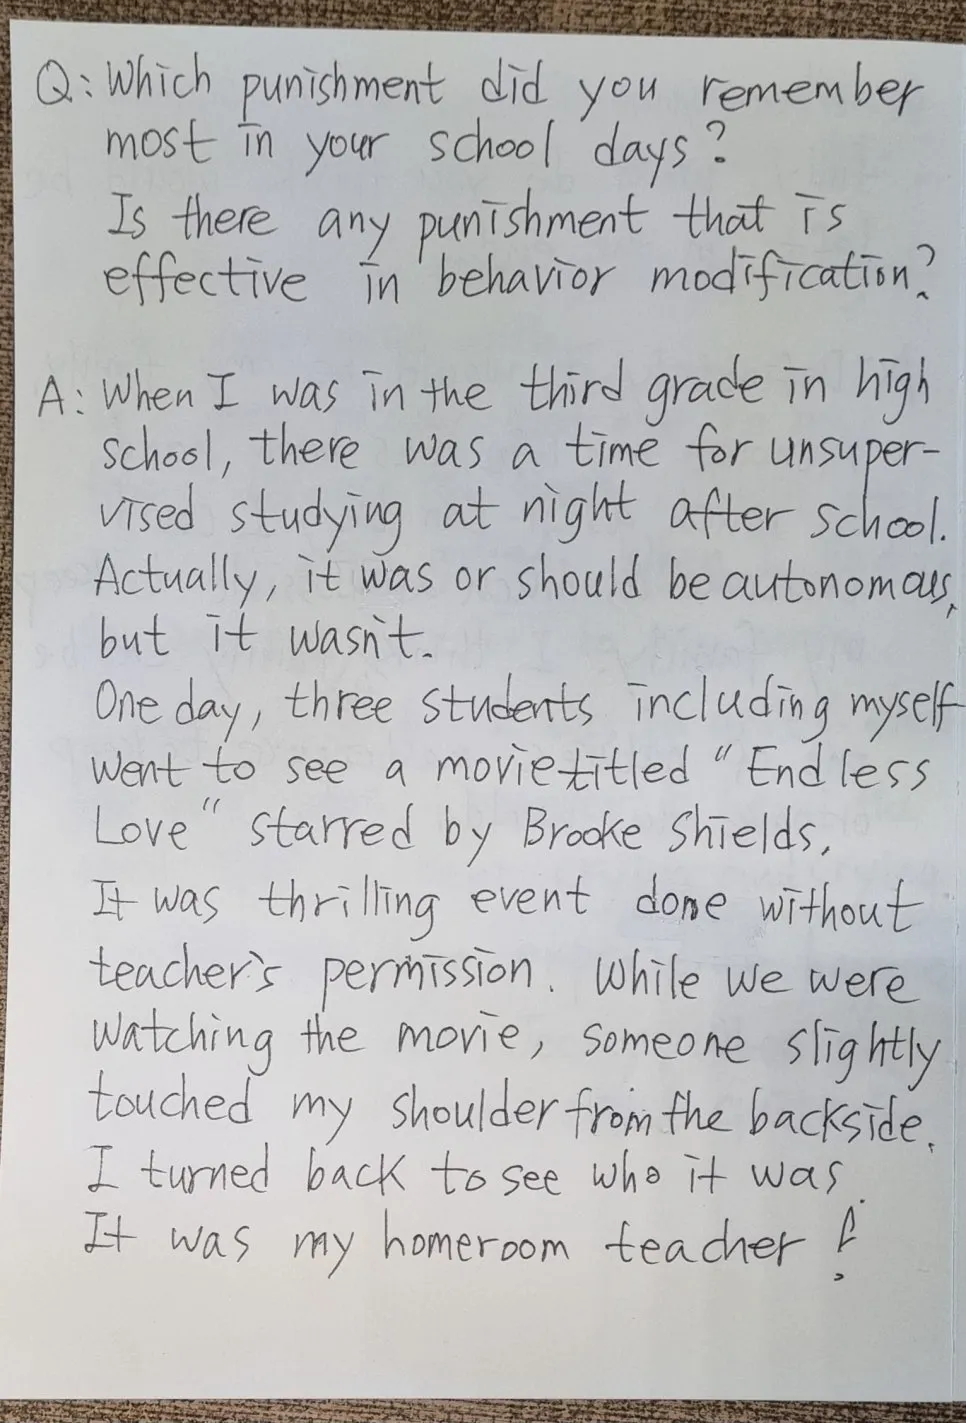 Q: Which punishment did you remember
most in your school days?
Is there any punishment that is
effective in behavior modification?
A: When I was in the third grade in high
school, there was a time for unsuper-
vised studying at night after school.
Actually, it was or should be autonomous,
but it wasn't.
One day, three students including myself
went to see a movie titled "Endless
Love" starred by Brooke Shields.
It was thrilling event done without
teacher's permission. While we were
watching the movie, someone slightly
touched my shoulder from the backside.
I turned back to see who it was.
It was my homeroom teacher!